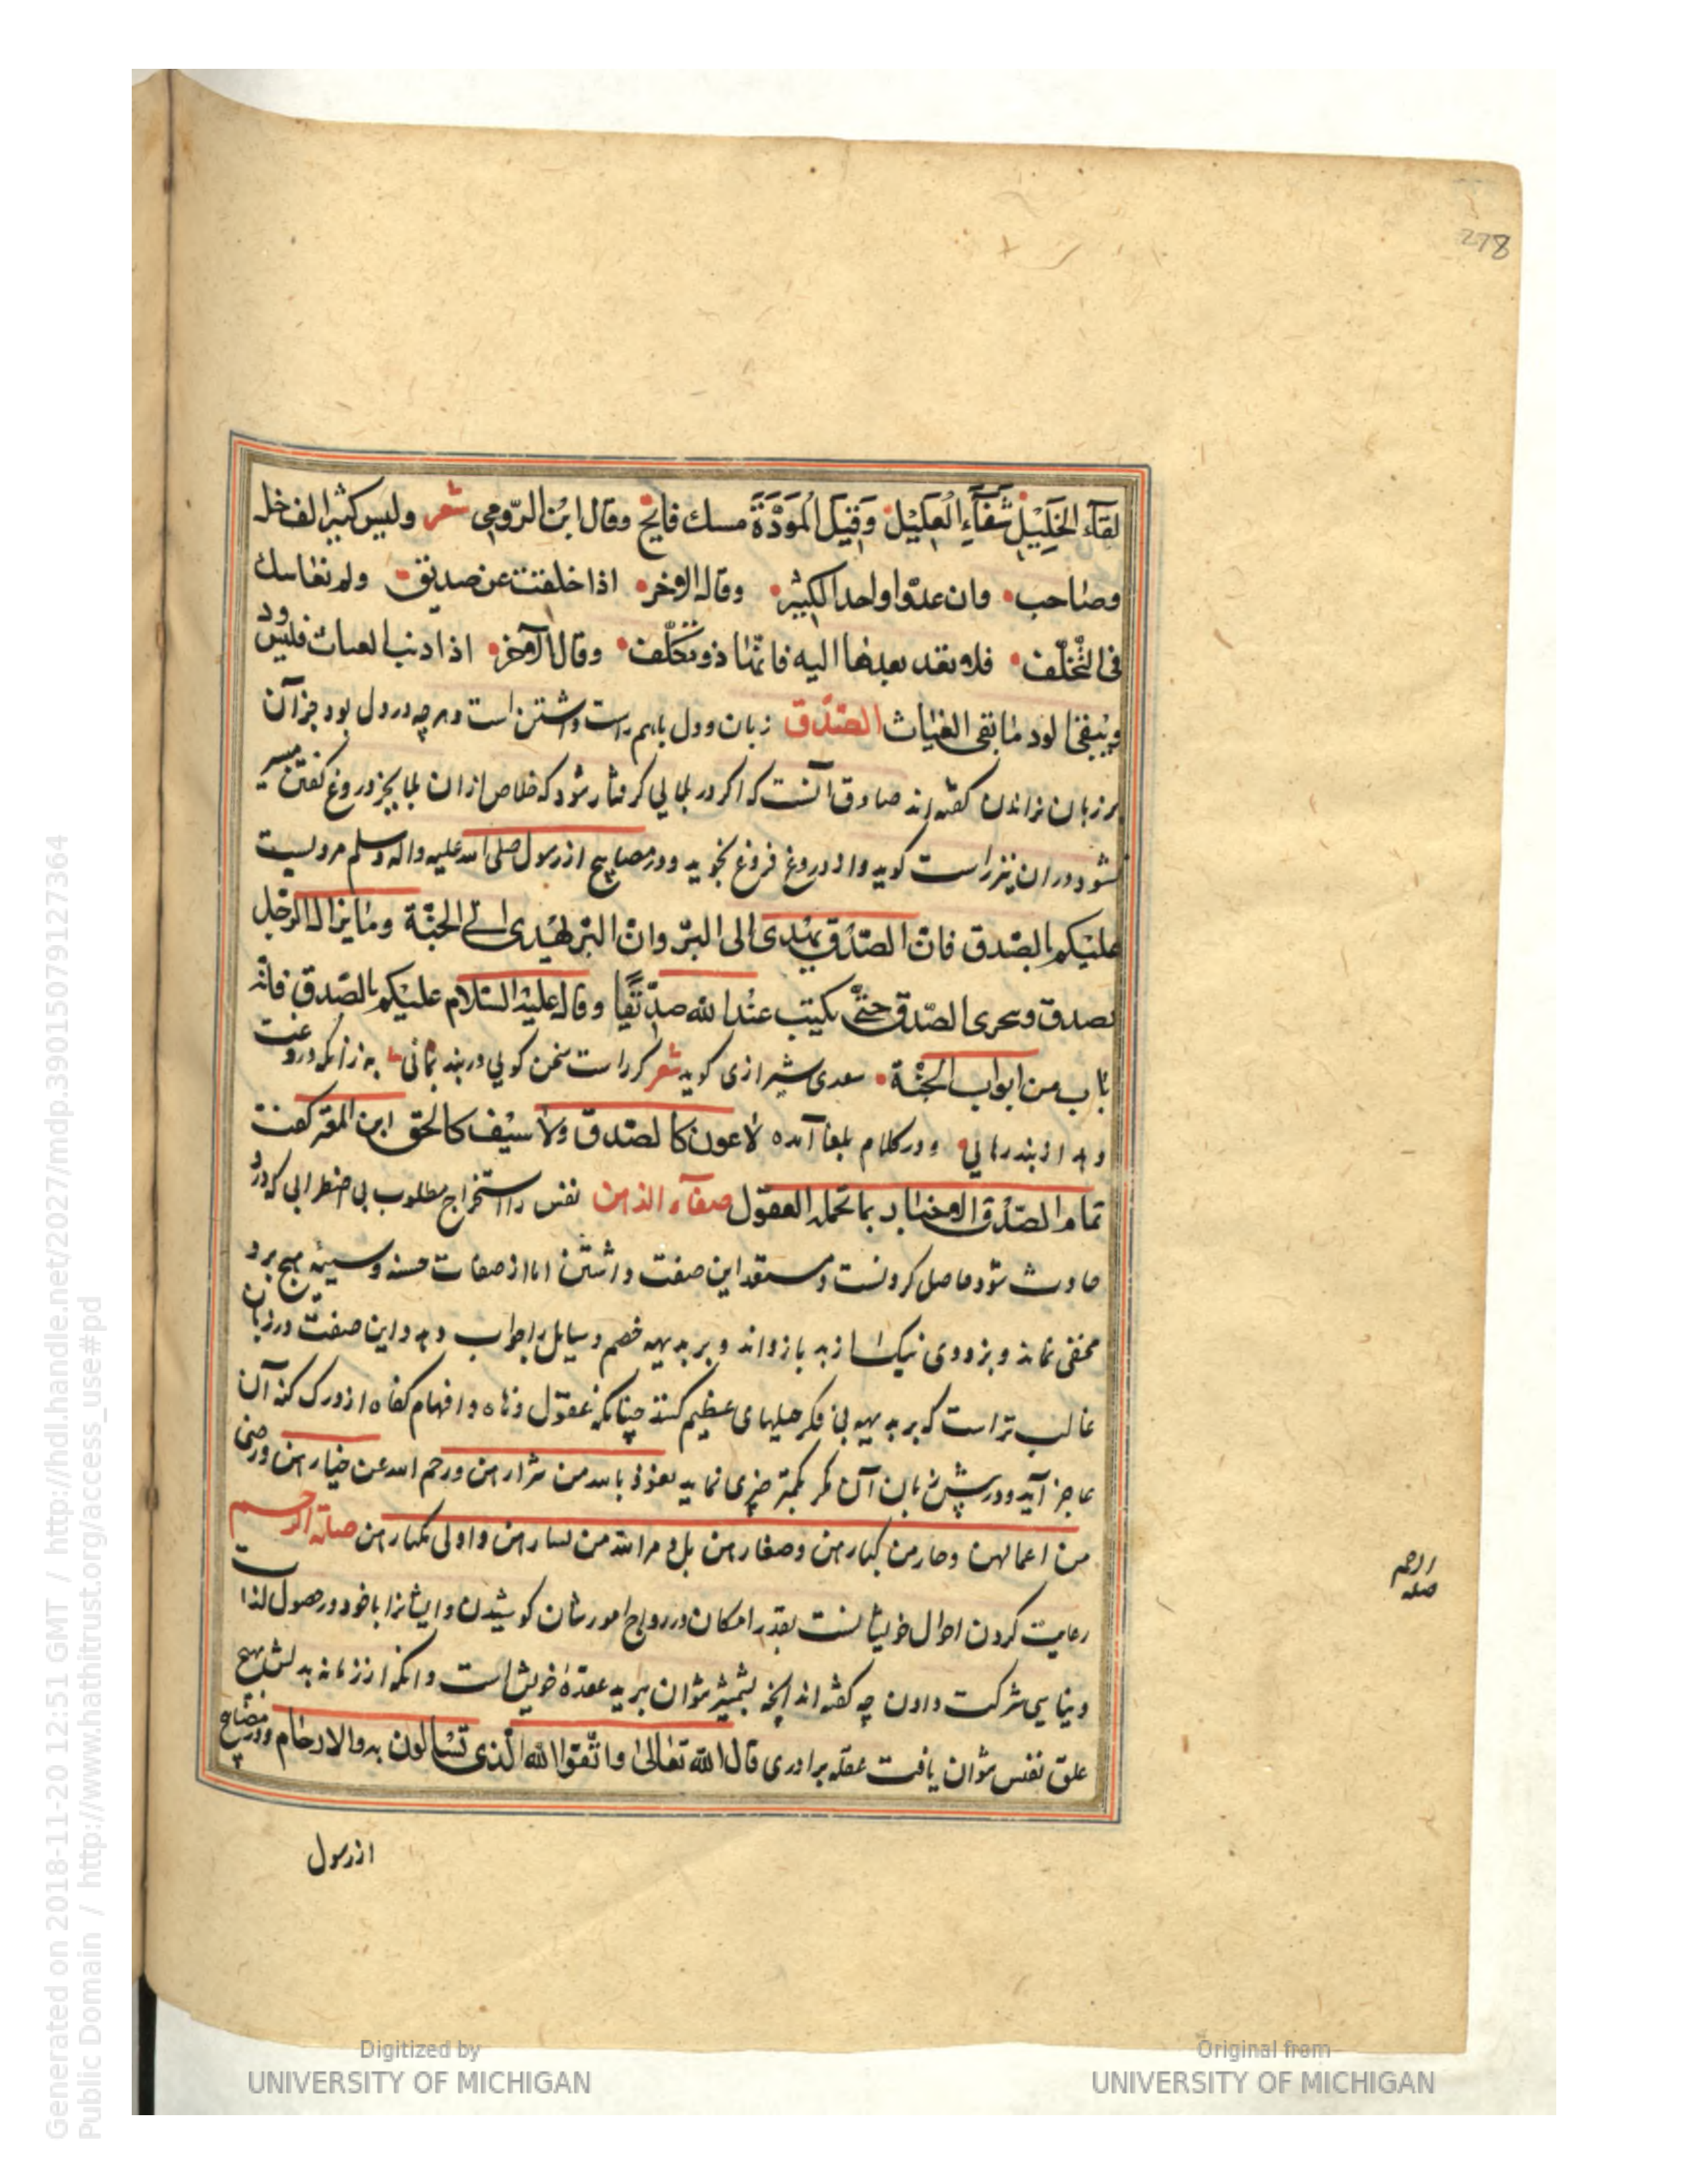 278
لقآء الخَلِيْلِ شَفَآءِ الْعَلِيْل وَقِيَل الْمَوَدَّةَ مسك فايح وقال ابن الرّومى شعر وليس كثيرا الف خل
وصاحب وان عدوّا واحدا لكثير وقال الاخر اذا خلفت عن صديق ولم يعاتبك
فى التّخلّف فلا تعد بعدها اليه فانّما ذو تكلّف وقال الآخر اذا ذهب العتاب فليس ودّ
ويبقى الود ما بقى العتاب الصّدق زبان و دل باهم راست داشتن است و هر چه در دل بود جز آن
بر زبان نراندن گفته اند صادق آنست که اگر در بلایی گرفتار شود که خلاص ازان بلا بجز دروغ گفتن میسر
نشود دران نیز راست گوید و از دروغ فروغ نجوید و در مصابیح از رسول صلی الله علیه و اله وسلم مرویست
عليكم بالصّدق فان الصّدق يهدى الى البرّ وان البرّ يهدى الى الجنّة وما يزال الرّجل
يصدق ويتحرى الصّدق حتّى يكتب عند الله صدّيقا وقال عليه السّلام عليكم بالصّدق فانّه
باب من ابواب الجنّة سعدی شیرازی گوید شعر گر راست سخن گویی و در بند بمانی به زانکه دروغت
دهد از بند رهایی و در کلام بلغا آمده لا عون كالصّدق ولا سيف كالحق ابن المعتز گفت
تمام الصّدق الاخبار بما تحمله العقول صفآء الذهن نفس را استخراج مطلوب بی اضطرابی که در و
حادث شود حاصل کردنست و مستعد این صفت داشتن اما از صفات حسنه و سیئه هیچ برو
مخفی نماند و بزودی نیک را از بد باز داند و بر بدیهه خصم و سایل را جواب دهد و این صفت در زنان
غالب تر است که بر بدیهه بی فکر حیلهای عظیم کنند چنانکه عقول دهاه و افهام کفاه از درک کنه آن
عاجز آید و در پیش زنان آن مکر کمتر چیزی نماید نعوذ بالله من شرارهن ورحم الله عن خيارهن
من اعمالهن وصغارهن صلة الرحم
رعایت کردن احوال خویشانست بقدر امکان در رواج امور شان کوشیدن و ایشانرا با خود در حصول لذات
دنیایی شرکت دادن چه گفته اند آنچه بشمشیر نتوان برید عقده خویشی است و آنکه از زمانه بدلش بهیچ
علق نفیس نتوان یافت عقله برادری قال الله تعالى واتّقوا الله الّذى تسآلون به والارحام و در مصابیح
از رسول
الرحم
صله
Digitized by
UNIVERSITY OF MICHIGAN
Original from
UNIVERSITY OF MICHIGAN
Generated on 2018-11-20 12:51 GMT / http://hdl.handle.net/2027/mdp.39015079127364
Public Domain / http://www.hathitrust.org/access_use#pd